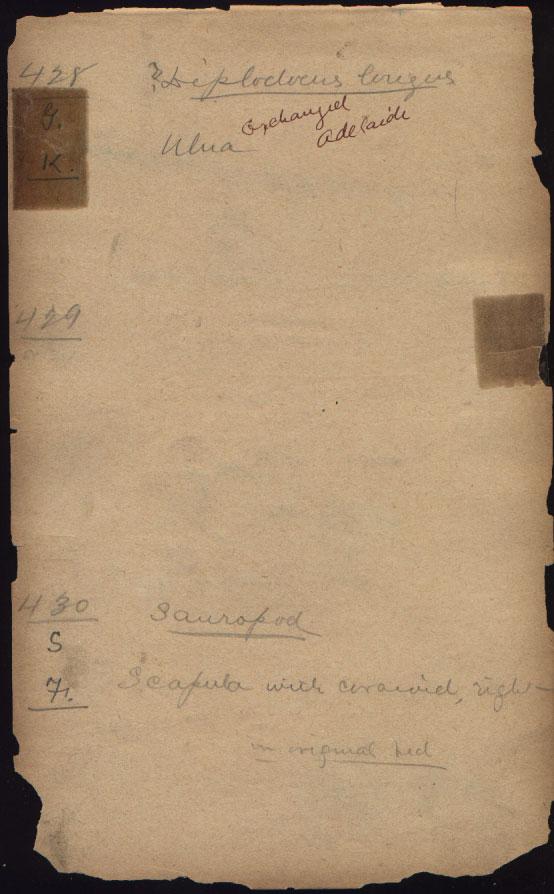 428 ? Diplodocus longus
G. Exchanged
K. Ulna Adelaide
429
430 Sauropod
S
7. Scapula with coracoid, right
in original bed